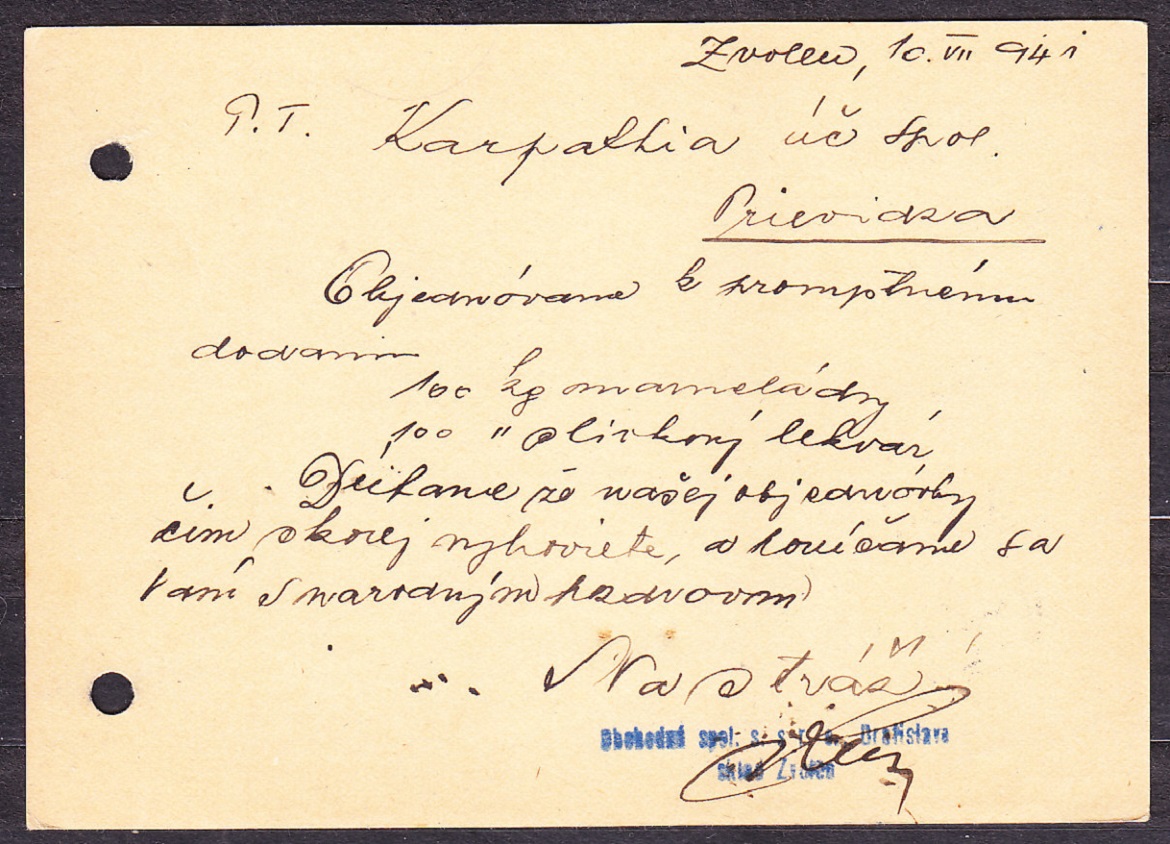 Zvolen, 10. VII 941
P. T. Karpathia úč spol.
Prievidza
Objednávame k promptnému
dodaniu
100 kg mamelády
100 " slivkový lekvár
Dúfame že našej objednávky
čím skorej vyhoviete, a lúčime sa
Vami s národným pozdravom
Na stráž
Obchodná spol. s. s r. o. Bratislava
sklad Zvolen